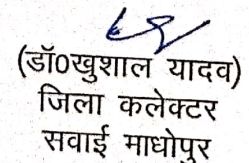 (डॉ0खुशाल यादव)
जिला कलेक्टर
सवाई माधोपुर